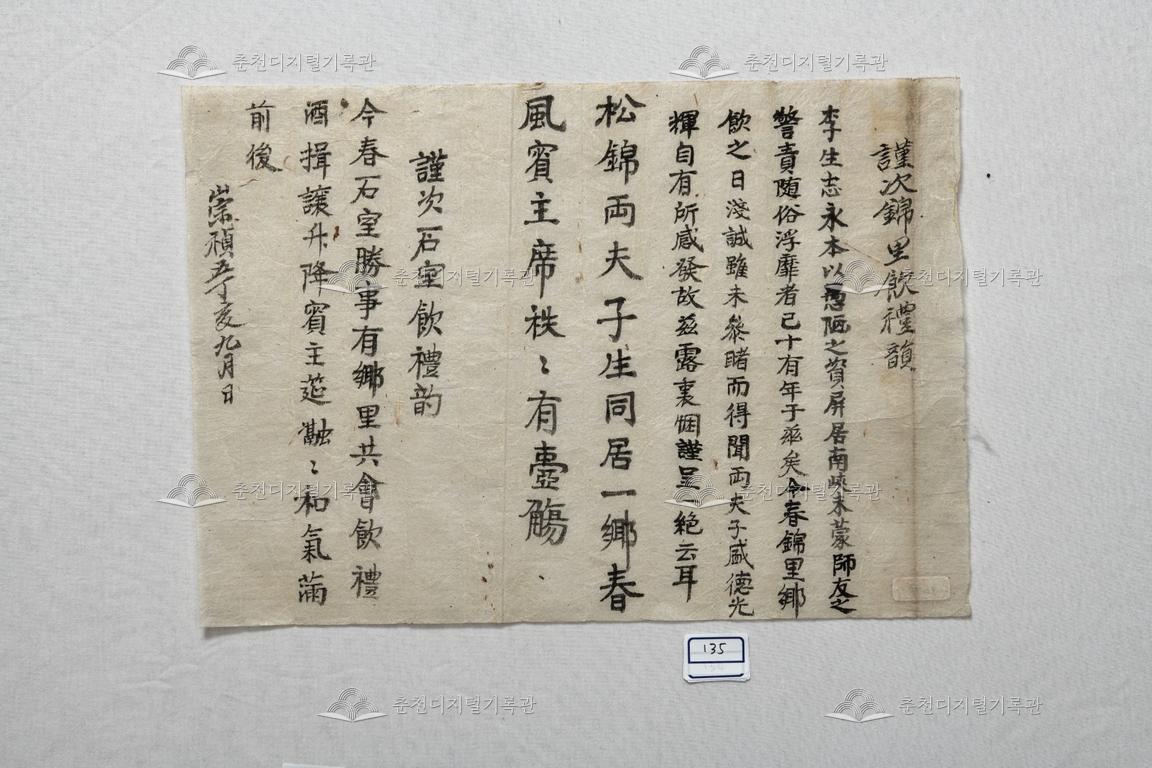 謹次錦里飮禮韻
李生志永本以愚陋之質屏居南峽未蒙師友之
警責随俗浮靡者已十有年于玆矣今春錦里鄉
飮之日淺誠雖未叅睹而得聞両夫子盛德光
輝自有所感發故玆露裏悃謹呈一絶云耳
松錦両夫子生同居一鄉春
風賓主席秩〻有壺觴
謹次石室飮禮韵
今春石室勝事有鄉里共會飮禮
酒揖讓升降賓主莚融〻和氣滿
前後
崇禎亥九月日
135
춘천디지털기록관
춘천디지털기록관
춘천디지털기록관
춘천디지털기록관
춘천디지털기록관
춘천디지털기록관
춘천디지털기록관
춘천디지털기록관